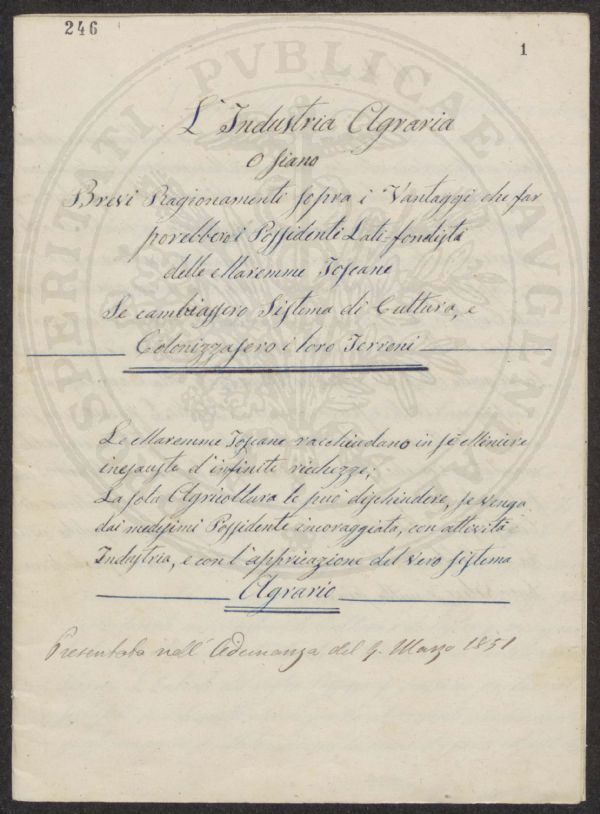 246
1
L'Industria Agraria
O siano
Brevi Ragionamenti sopra i Vantaggi che far
porebbero i Possidenti Lati-fondisti
delle Maremme Toscane
Se cambiassero Sistema di Cultura, e
Colonizzassero i loro Terreni
Le Maremme Toscane racchiudano in se Miniere
inesauste d'infinite richezze;
La sola Agricoltura le può dischiudere, se venga
dai medesimi Possidente incoraggiata, con attività
Industria, e con l'appricazione del vero sistema
Agrario
Presentata nell'Adunanza del 9. Marzo 1851
PROSPERITATI PVBLICAE AVGENDAE